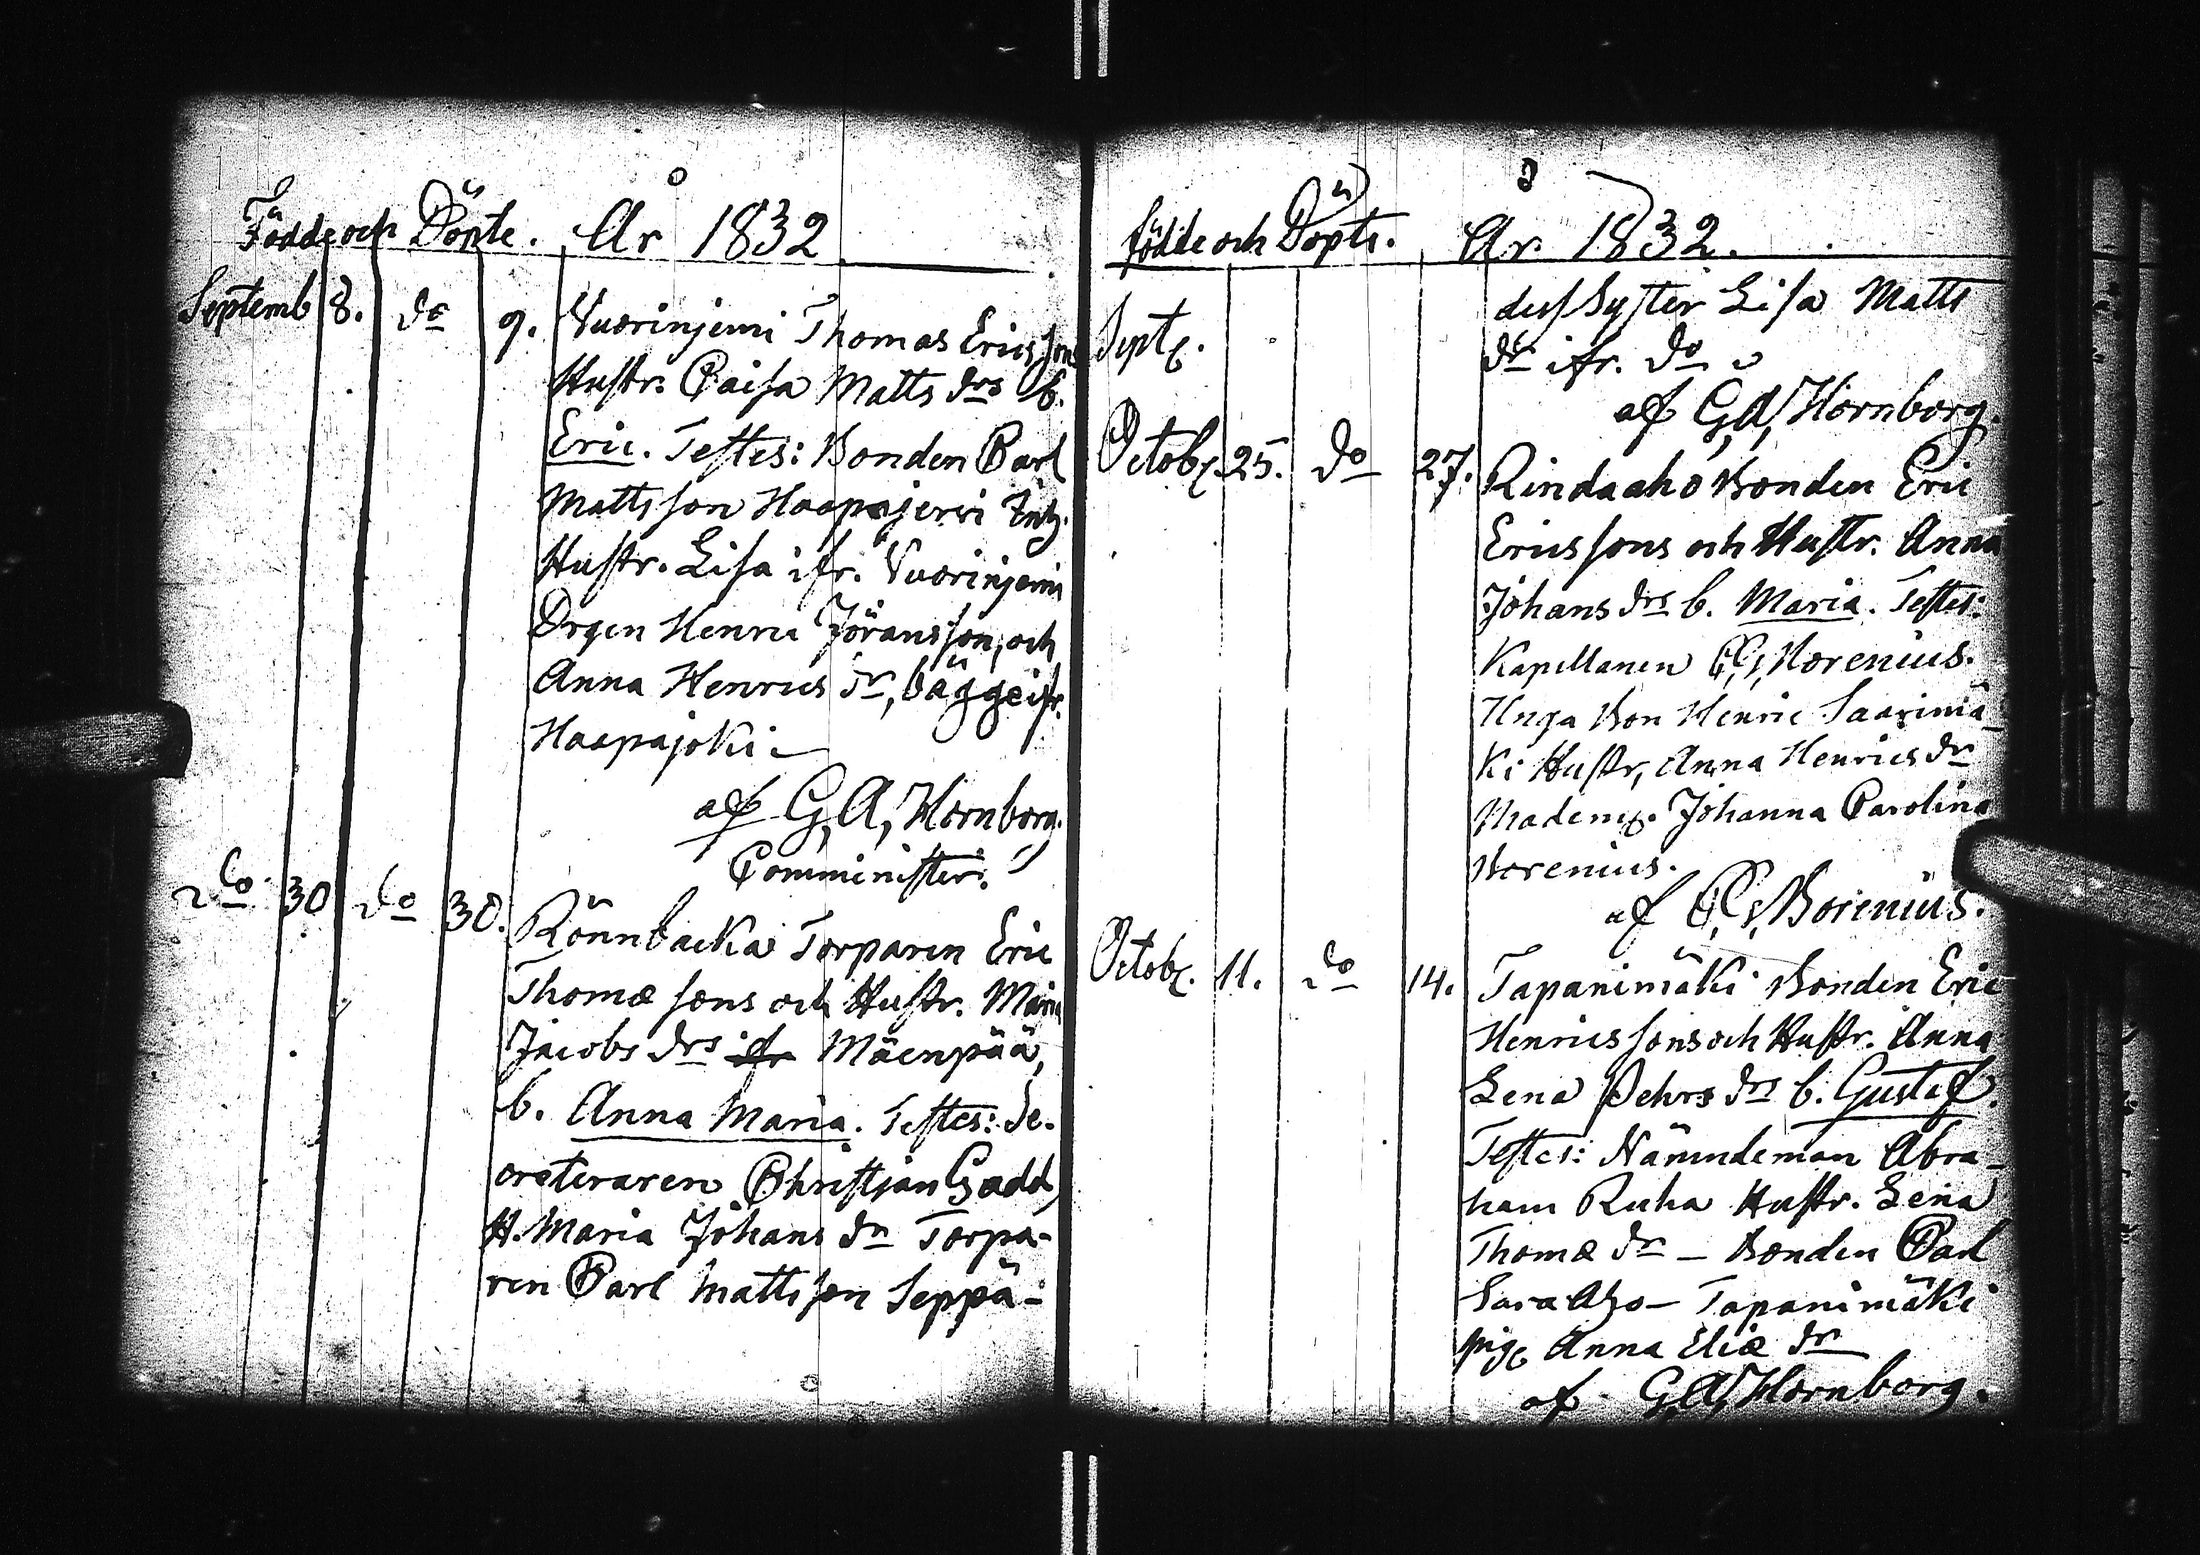 Födde och Döpte. År 1832
Septemb 8. do 9. Vuorinjemi Thomas Ericsson
Hustr. Caisa Matts drs b.
Eric. Testes: Bonden Carl
Mattsson Haapajervi
Hustr. Lisa ifr. Vuorinjemi
Drgen Henric Jöransson, och
Anna Henrics dr, bägge ifr.
Haapajoki
af G, A, Hornborg.
Comminister.
do 30 do 30. Rönnbacka Torparen Eric
Thomæ sons och Hustr. Maria
Jacobs drs ifr Mäenpää,
b. Anna Maria. Testes: Se-
creteraren Christjan Gadd,
H. Maria Johans dr Torpa-
ren Carl Mattsson Seppä-
Födde och Döpte. År 1832.
Sept. dess Syster Lisa Matts
dr ifr. do
af G, A, Hornborg.
Octob. 25. do 27. Rindaaho Bonden Eric
Ericssons och Hustr. Anna
Johans drs b. Maria. Testes:
Kapellanen C, G, Borenius.
Unga Bon Henric Saarimä-
ki Hustr, Anna Henrics dr
Madem. Johanna Carolina
Borenius.
af C, G, Borenius.
Octob. 11. do 14. Tapanimäki Bonden Eric
Henricssons och Hustr. Anna
Lena Pehrs drs b. Gustaf.
Testes: Nämndeman Abra-
ham Ruha Hustr. Lena
Thomæ dr - Bonden Carl
Saraaho - Tapanimäki
pig. Anna Eliæ dr
af G, A, Hornborg.